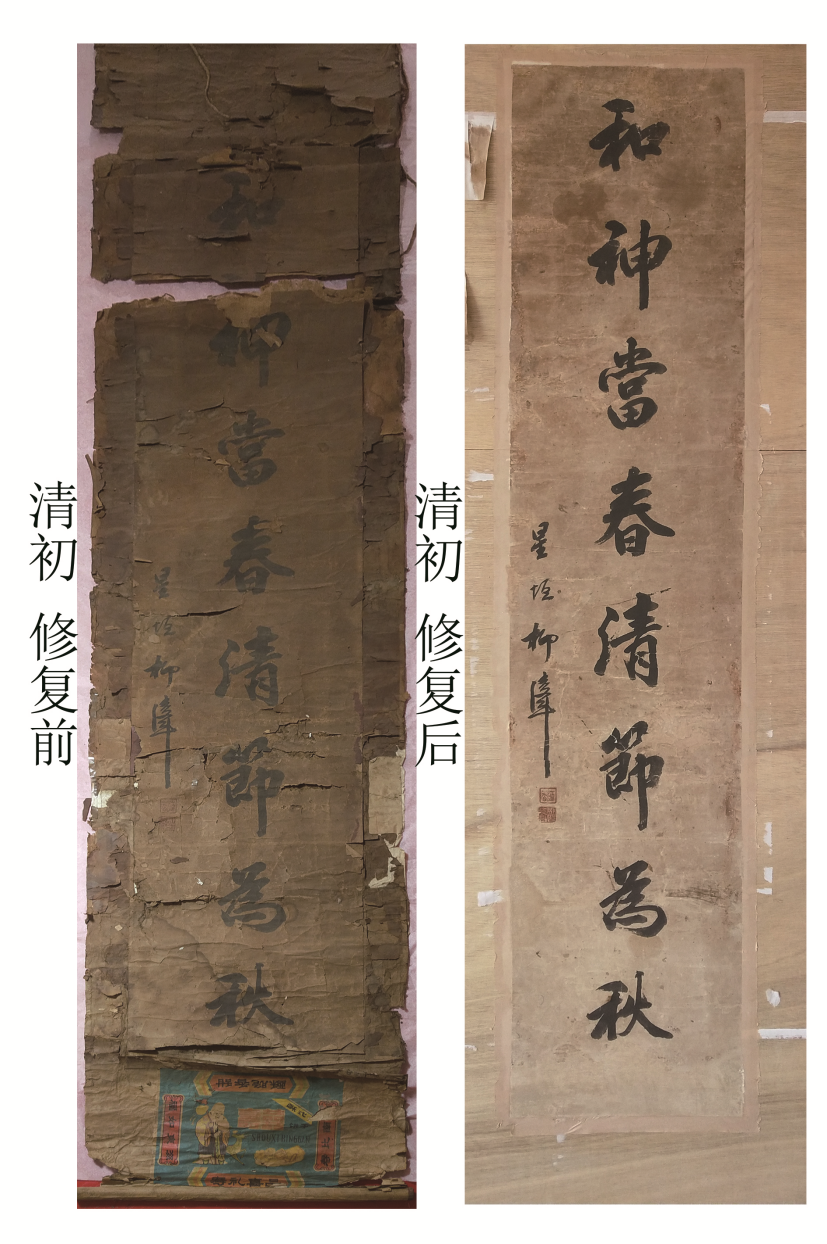 清初 修复前
和神當春清節為秋
星垣柳
清初 修复后
和神當春清節為秋
星垣柳